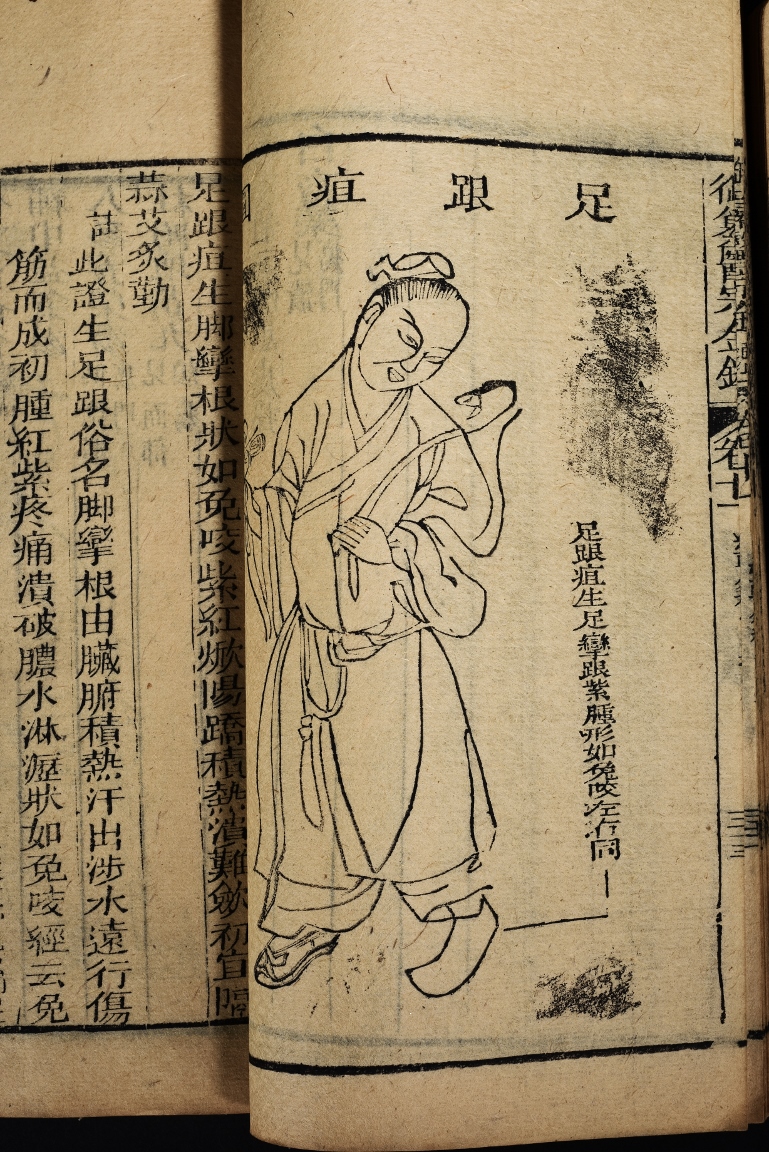 足跟疽
足跟疽生足攣跟紫腫形如兔咬左右同
卷七十
足跟疽生脚攣根狀如兔咬紫紅焮陽蹻積熱潰難斂初宜隔
蒜艾炙勤
註此證生足跟俗名脚攣根由臟腑積熱汗出涉水遠行傷
筋而成初腫紅紫疼痛潰破膿水淋瀝狀如兔咬經云兔